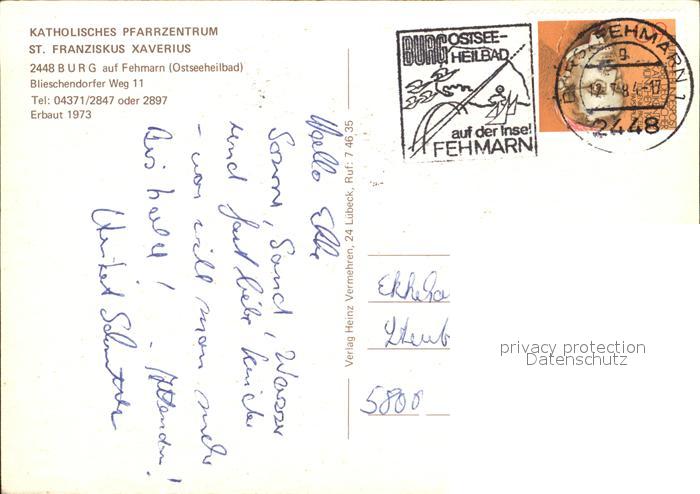 KATHOLISCHES PFARRZENTRUM
ST. FRANZISKUS XAVERIUS
2448 B U R G auf Fehmarn (Ostseeheilbad)
Blieschendorfer Weg 11
Tel: 04371/2847 oder 2897
Erbaut 1973
BURG OSTSEE-
HEILBAD
auf der Insel
FEHMARN
FEHMARN 1
2448
Hallo Ekke
Sonne, Sand, Wasser
und fast liebe Kinder
- was will man mehr
Bis bald! -
Verlag Heinz Vermehren, 24 Lübeck, Ruf: 7 46 35
5800
privacy protection
Datenschutz